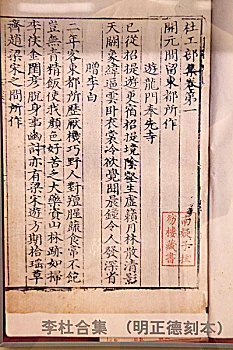 杜工部集卷第
開元間留東都所作
遊龍門奉先寺
已從招提遊更宿招提境陰壑生虛籟月林散清影
天闕象緯逼雲卧衣裳冷欲覺聞晨鐘令人發深省
贈李白
二年客東都所歷厭機巧野人對羶腥蔬食常不飽
豈無青精飯使我顏色好苦乏大藥資山林跡如掃
李侯金閨彥脫身事幽討亦有梁宋遊方期拾瑤草
齊趙梁宋之間所作
樓藏書
李杜合集 （明正德刻本）